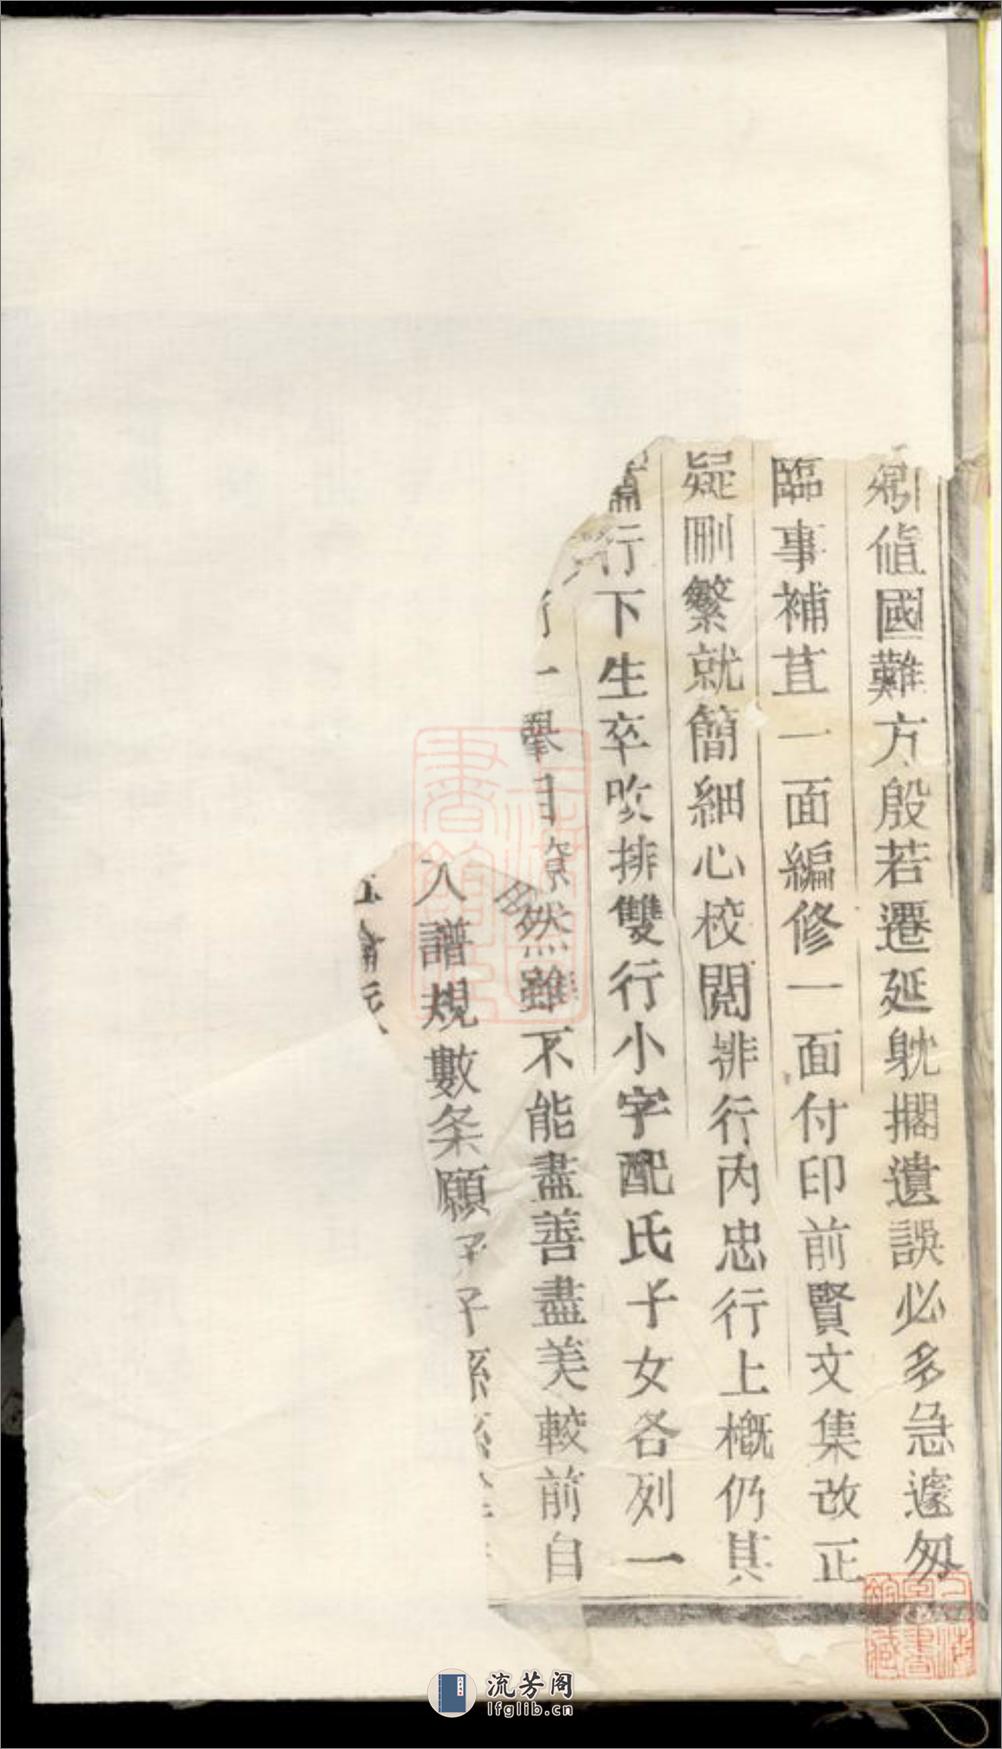 值國難方殷若遷延躭擱遺誤必多急遽匆
臨事補苴一面編修一面付印前賢文集改正
疑刪繁就簡細心校閱排行內忠行上概仍其
行下生卒吹排雙行小字配氏子女各列一
一舉目瞭然雖不能盡善盡美較前自
入譜規數条願子孫
上海圖書館藏
流芳阁
lfglib.cn